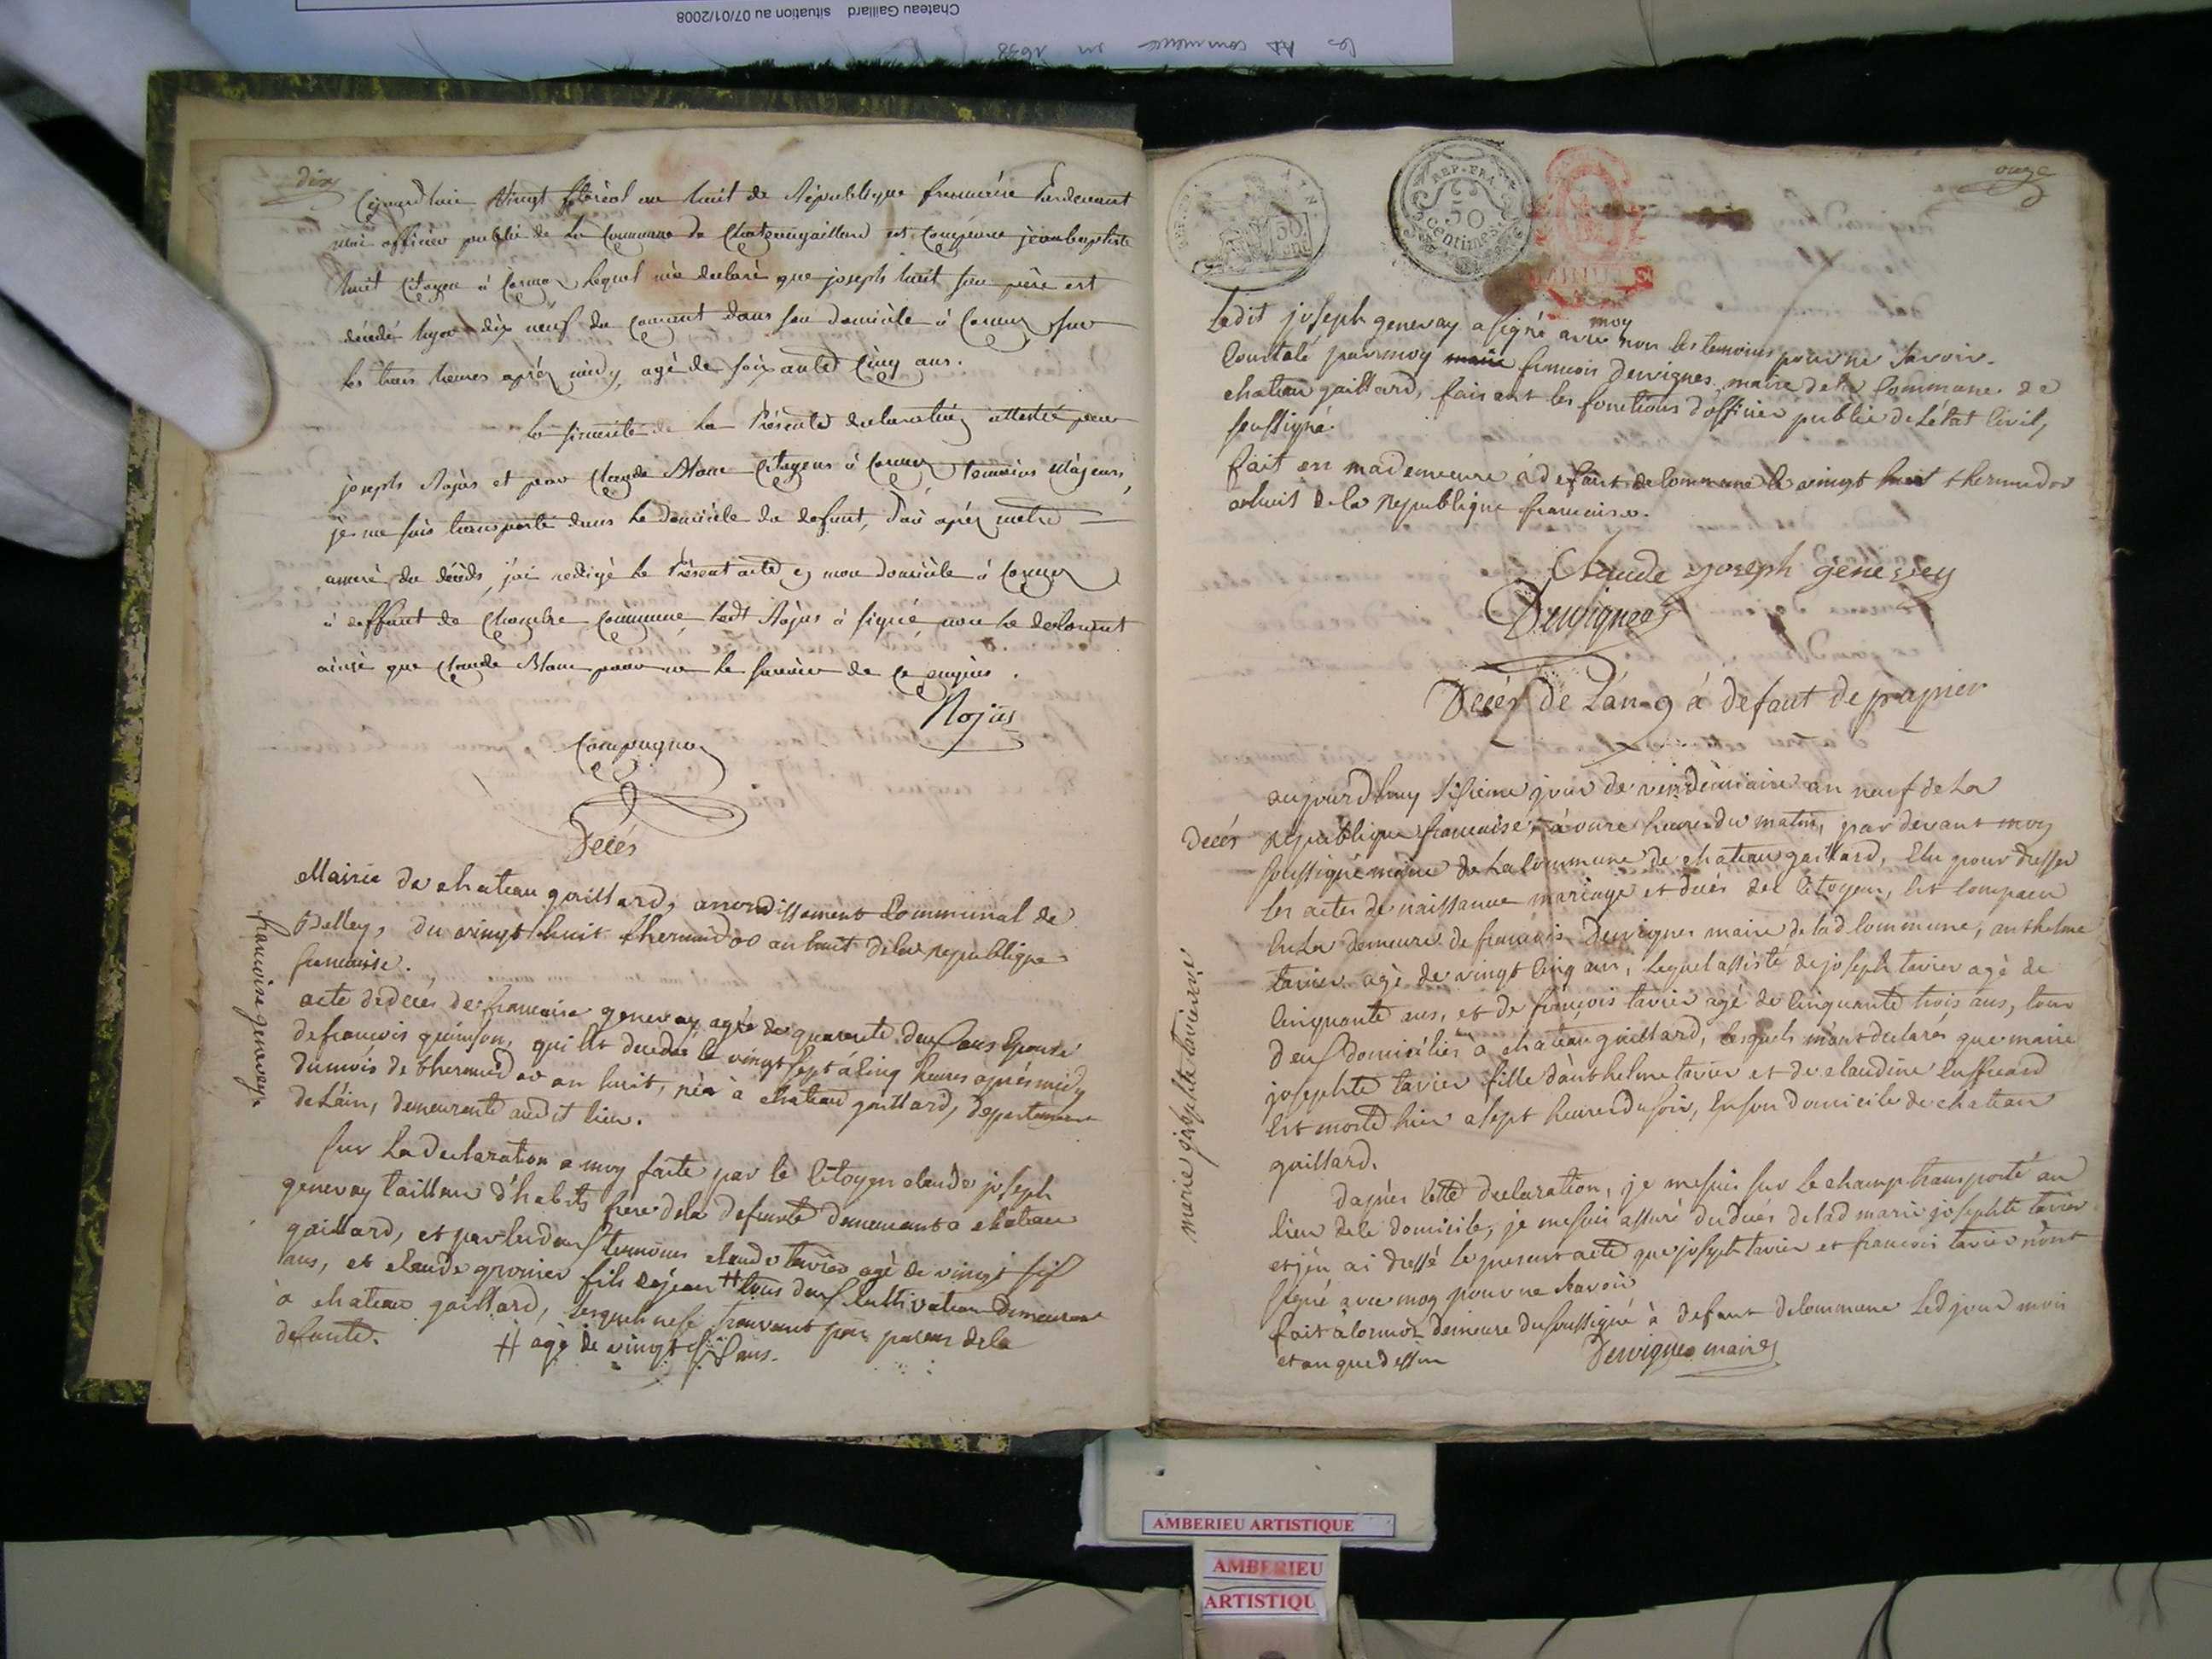 Chateau Gaillard situation au 07/01/2008
les commence en 1698
dix
Cejourdhuie Vingt floréal an huit de République francaise Pardevant
moi officier publie de la Commune de Chateaugaillard est Comparu jean baptiste
huit Citoyen à Cormoz lequel m'a declaré que joseph huit son père est
décédé hyer dix neuf du Courant dans son domicile à Cormoz sur
les trois heures aprés midy, agé de soixante Cinq ans.
la sincerité de la Présente declaration attestée par
joseph Rojas et par Claude Blanc Citoyens à Cormoz temoins Majeurs,
je me suis transporté dans le domicile du defunt, d'où aprés metre
assuré du décéds, j'ai redigé le Présent acte en mon domicile à Cormoz
à deffaut de Chambre Commune ledt Rojas à signé non le declarant
ainsi que Claude Blanc pour ne le savoir de ce enquis.
Rojas
Compagnon
Décés
Mairie de chateau gaillard, arrondissement Communal de
Belley, du vingt huit thermidor an huit de la republique
francaise.
francoise genevay.
acte de decés de francoise genevay agée de quarente deux ans Epouse
de francois quinson, qui Est decedée le vingt sept à Cinq heures aprés midy
du mois de thermidor an huit, née à chateau gaillard, departement
de L'ain, demeurante audit lieu.
Sur La declaration a moy faite par le Citoyen claude joseph
genevay tailleur d'habits frère de la defunte demeurant a chateau
gaillard, et par les deux temoins claude tavier agé de vingt six
ans, et claude gronier fils dejean # tous deux Cultivateur demeurant
à chateau gaillard, lesquels ne se trouvant pas parens de la
defunte.
# agé de vingt six ans.
onze
REP. FRA.
50
Centimes
Ledit joseph genevay a signé avec moy non les temoins pour ne savoir.
Constaté par moy francois Dervignes maire de la Commune de
chateau gaillard, faisant les fonctions d'officier public de L'état Civil,
soussigné.
fait en ma demeure à defaut de commune le vingt huit thermidor
an huit de la republique francaise.
Claude joseph genevey
Dervignes
Décés de L'an 9 à defaut de papier
Décés
marie josephte tavier
aujourdhuy sisieme jour de vendemiaire an neuf de La
republique francaise, à onze heures du matin, par devant moy
soussigné maire de La Commune de chateau gaillard, Elu pour dresser
les actes de naissance mariage et décés des Citoyens, Est Comparu
En La demeure de francois Dervignes maire de lad Commune, anthelme
tavier agé de vingt Cinq ans, lequel assisté de joseph tavier agé de
Cinquante ans, et de francois tavier agé de Cinquante trois ans, tous
deux domiciliés à chateau gaillard, lesquels m'ont declarés que marie
josephte tavier fille d'anthelme tavier et de claudine
Est morte hier a sept heures du soir, En son domicile de chateau
gaillard.
D'aprés Cette declaration, je me suis sur le champ transporté au
lieu de ce domicile, je me suis assuré du décés de lad marie josephte tavier
et j'en ai dressé le present acte que joseph tavier et francois tavier n'ont
signé avec moy pour ne savoir
fait a Cormoz demeure du soussigné à defaut de Commune Led jour mois
et an que dessus
Dervignes maire
AMBERIEU ARTISTIQUE
AMBERIEU
ARTISTIQU